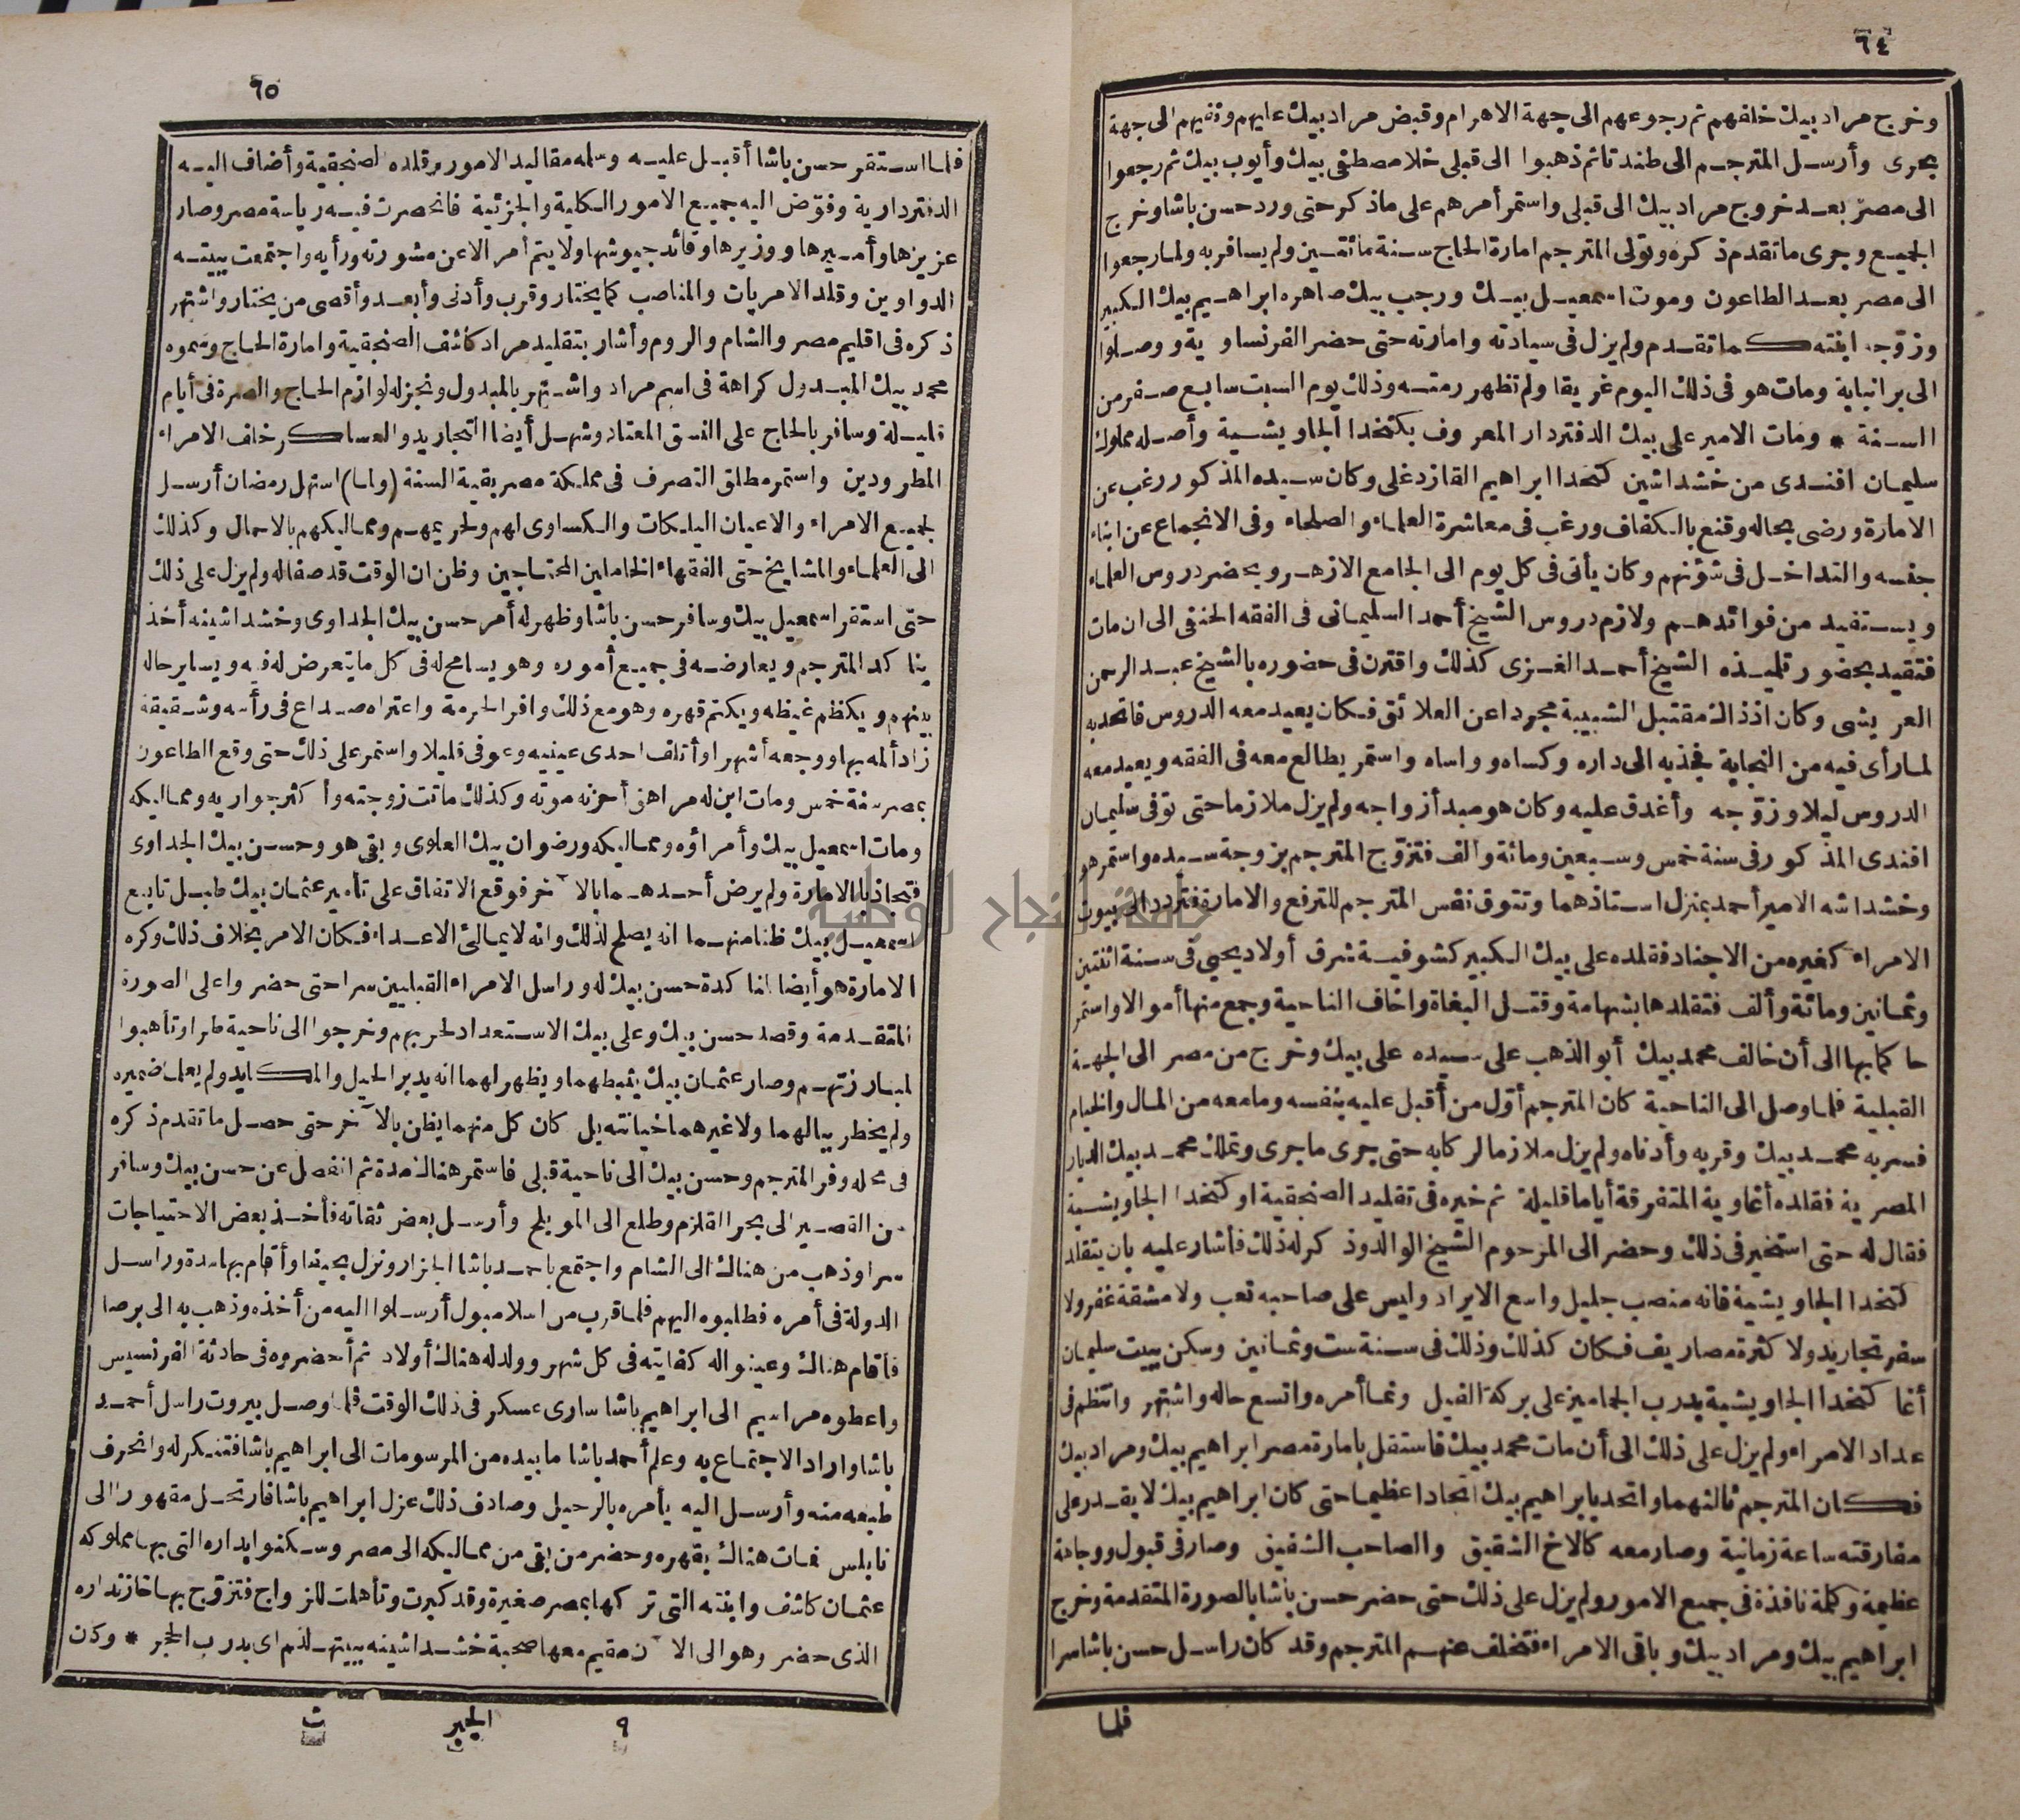 ٦٤
وخرج مراد بيك خلفهم ثم رجوعهم الى جهة الاهرام وقبض مراد بيك عليهم ونفيهم الى جهة
بحرى وأرسل المترجم الى طندتا ثم ذهبوا الى قبلى خلا مصطفى بيك وأيوب بيك ثم رجعوا
الى مصر بعد خروج مراد بيك الى قبلى واستمر أمرهم على ماذكر حتى ورد حسن باشا وخرج
الجميع وجرى ماتقدم ذكره وتولى المترجم امارة الحاج سنة مائتين ولم يسافر به ولما رجعوا
الى مصر بعد الطاعون وموت اسمعيل بيك ورجب بيك صاهره ابراهيم بيك الكبير
وزوّجه ابنته كما تقدم ولم يزل فى سيادته وامارته حتى حضر الفرنساوية ووصلوا
الى بر انبابة ومات هو فى ذلك اليوم غريقا ولم تظهر رمته وذلك يوم السبت سابع صفر من
السنة * ومات الامير على بيك الدفتردار المعروف بكتخدا الجاويشية وأصله مملوك
سليمان افندى من خشداشين كتخدا ابراهيم القازدغلى وكان سيده المذكور رغب عن
الامارة ورضى بحاله وقنع بالكفاف ورغب فى معاشرة العلماء والصلحاء وفى الانجماع عن ابناء
جنسه والتداخل فى شؤنهم وكان يأتى فى كل يوم الى الجامع الازهر ويحضر دروس العلماء
ويستفيد من فوائدهم ولازم دروس الشيخ أحمد السليمانى فى الفقه الحنفى الى ان مات
فتقيد بحضور تلميذه الشيخ أحمد الغزى كذلك واقترن فى حضوره بالشيخ عبد الرحمن
العريشى وكان اذذاك مقتبل الشبيبة مجردا عن العلائق فكان يعيد معه الدروس فاتحد به
لما رأى فيه من النجابة فجذبه الى داره وكساه وواساه واستمر يطالع معه فى الفقه ويعيد معه
الدروس ليلا وزوّجه وأغدق عليه وكان هو مبدأ زواجه ولم يزل ملازما حتى توفى سليمان
افندى المذكور فى سنة خمس وسبعين ومائة وألف فتزوّج المترجم بزوجة سيده واستمر هو
وخشداشه الامير أحمد بمنزل استاذهما وتتوق نفس المترجم للترفع والامارة فتردد الى بيوت
الامراء كغيره من الاجناد فقلده على بيك الكبير كشوفية شرق أولاد يحيى فى سنة اثنتين
وثمانين ومائة وألف فتقلدها بشهامة وقتل البغاة واخاف الناحية وجمع منها أموالا واستمر
حاكما بها الى أن خالف محمد بيك أبو الذهب على سيده على بيك وخرج من مصر الى الجهة
القبلية فلما وصل الى الناحية كان المترجم أوّل من أقبل عليه بنفسه وما معه من المال والخيام
فسر به محمد بيك وقربه وأدناه ولم يزل ملازما لركابه حتى جرى ماجرى وتملك محمد بيك الديار
المصرية فقلده أغاوية المتفرقة أياما قليلة ثم خيره فى تقليد الصنجقية او كتخدا الجاويشية
فقال له حتى استخير فى ذلك وحضر الى المرحوم الشيخ الوالد وذكر له ذلك فأشار عليه بان يتقلد
كتخدا الجاويشية فانه منصب جليل واسع الايراد وليس على صاحبه تعب ولا مشقة غفر ولا
سفر تجاريد ولا كثرة مصاريف فكان كذلك وذلك فى سنة ست وثمانين وسكن ببيت سليمان
أغا كتخدا الجاويشية بدرب الجماميز على بركة الفيل ونما أمره واتسع حاله واشتهر وانتظم فى
عداد الامراء ولم يزل على ذلك الى أن مات محمد بيك فاستقل بامارة مصر ابراهيم بيك ومراد بيك
فكان المترجم ثالثهما واتحد بابراهيم بيك اتحادا عظيما حتى كان ابراهيم بيك لا يقدر على
مفارقته ساعة زمانية وصار معه كالاخ الشقيق والصاحب الشفيق وصار فى قبول ووجاهة
عظيمة وكلمة نافذة فى جميع الامور ولم يزل على ذلك حتى حضر حسن باشا بالصورة المتقدمة وخرج
ابراهيم بيك ومراد بيك وباقى الامراء فتخلف عنهم المترجم وقد كان راسل حسن باشا سرا
فلما
٦٥
فلما استقر حسن باشا أقبل عليه وسلمه مقاليد الامور وقلده الصنجقية وأضاف اليه
الدفتردارية وفوّض اليه جميع الامور الكلية والجزئية فانحصرت فيه رياسة مصر وصار
عزيزها وأميرها ووزيرها وقائد جيوشها ولا يتم أمر الا عن مشورته ورأيه واجتمعت ببيته
الدواوين وقلد الامريات والمناصب كما يختار وقرب وأدنى وأبعد وأقصى من يختار واشتهر
ذكره فى اقليم مصر والشام والروم وأشار بتقليد مراد كاشف الصنجقية وامارة الحاج وسموه
محمد بيك المبدول كراهة فى اسم مراد واشتهر بالمبدول ونجز له لوازم الحاج والصرة فى أيام
قليلة وسافر بالحاج على النسق المعتاد وشهل أيضا التجاريد والعساكر خلف الامراء
المطرودين واستمر مطلق التصرف فى مملكة مصر بقية السنة (ولما) استهل رمضان أرسل
لجميع الامراء والاعيان البلكات والكساوى لهم ولحريمهم ومماليكهم بالاحمال وكذلك
الى العلماء والمشايخ حتى الفقهاء الخاملين المحتاجين وظن ان الوقت قد صفا له ولم يزل على ذلك
حتى استقر اسمعيل بيك وسافر حسن باشا وظهر له أمر حسن بيك الجداوى وخشداشينه أخذ
يناكد المترجم ويعارضه فى جميع أموره وهو يسامح له فى كل ما يتعرض له فيه ويساير حاله
بينهم ويكظم غيظه ويكتم قهره وهو مع ذلك وافر الحرمة واعتراه صداع فى رأسه وشقيقة
زاد ألمه بها ووجعه أشهرا وأتلف احدى عينيه وعوفى قليلا واستمر على ذلك حتى وقع الطاعون
بمصر سنة خمس ومات ابن له مراهق أحزنه موته وكذلك ماتت زوجته وأكثر جواريه ومماليكه
ومات اسمعيل بيك وأمراؤه ومماليكه ورضوان بيك العلوى وبقى هو وحسن بيك الجداوى
فتجاذبا الامارة ولم يرض أحدهما بالآخر فوقع الاتفاق على تأمير عثمان بيك طبل تابع
اسمعيل بيك ظنا منهما انه يصلح لذلك وانه لا يمالئ الاعداء فكان الامر بخلاف ذلك وكره
الامارة هو أيضا لمناكدة حسن بيك له وراسل الامراء القبليين سرا حتى حضروا على الصورة
المتقدمة وقصد حسن بيك وعلى بيك الاستعداد لحربهم وخرجوا الى ناحية طرا وتأهبوا
لمبارزتهم وصار عثمان بيك يثبطهما ويظهر لهما انه يدبر الحيل والمكايد ولم يعلما ضميره
ولم يخطر ببالهما ولا غيرهما خيانته بل كان كل منهما يظن بالآخر حتى حصل ماتقدم ذكره
فى محله وفر المترجم وحسن بيك الى ناحية قبلى فاستمر هنالك مدة ثم انفصل عن حسن بيك وسافر
من القصير الى بحر القلزم وطلع الى المويلح وأرسل بعض ثقاته فأخذ بعض الاحتياجات
سرا وذهب من هناك الى الشام واجتمع باحمد باشا الجزار ونزل بحيفا وأقام بها مدة وراسل
الدولة فى أمره فطلبوه اليهم فلما قرب من اسلامبول أرسلوا اليه من أخذه وذهب به الى برصا
فأقام هناك وعينوا له كفايته فى كل شهر وولد له هناك أولاد ثم أحضروه فى حادثة الفرنسيس
واعطوه مراسيم الى ابراهيم باشا سارى عسكر فى ذلك الوقت فلما وصل بيروت راسل أحمد
باشا واراد الاجتماع به وعلم أحمد باشا مابيده من المرسومات الى ابراهيم باشا فتنكر له وانحرف
طبعه منه وأرسل اليه يأمره بالرحيل وصادف ذلك عزل ابراهيم باشا فارتحل مقهورا الى
نابلس فمات هناك بقهره وحضر من بقى من مماليكه الى مصر وسكنوا بداره التى بها مملوكه
عثمان كاشف وابنته التى تركها بمصر صغيرة وقد كبرت وتأهلت للزواج فتزوّج بها خازنداره
الذى حضر وهو الى الآن مقيم معها صحبة خشداشينه ببيتهم الذى بدرب الحجر * وكان
٩ الجبر ث
جامعة النجاح الوطنية